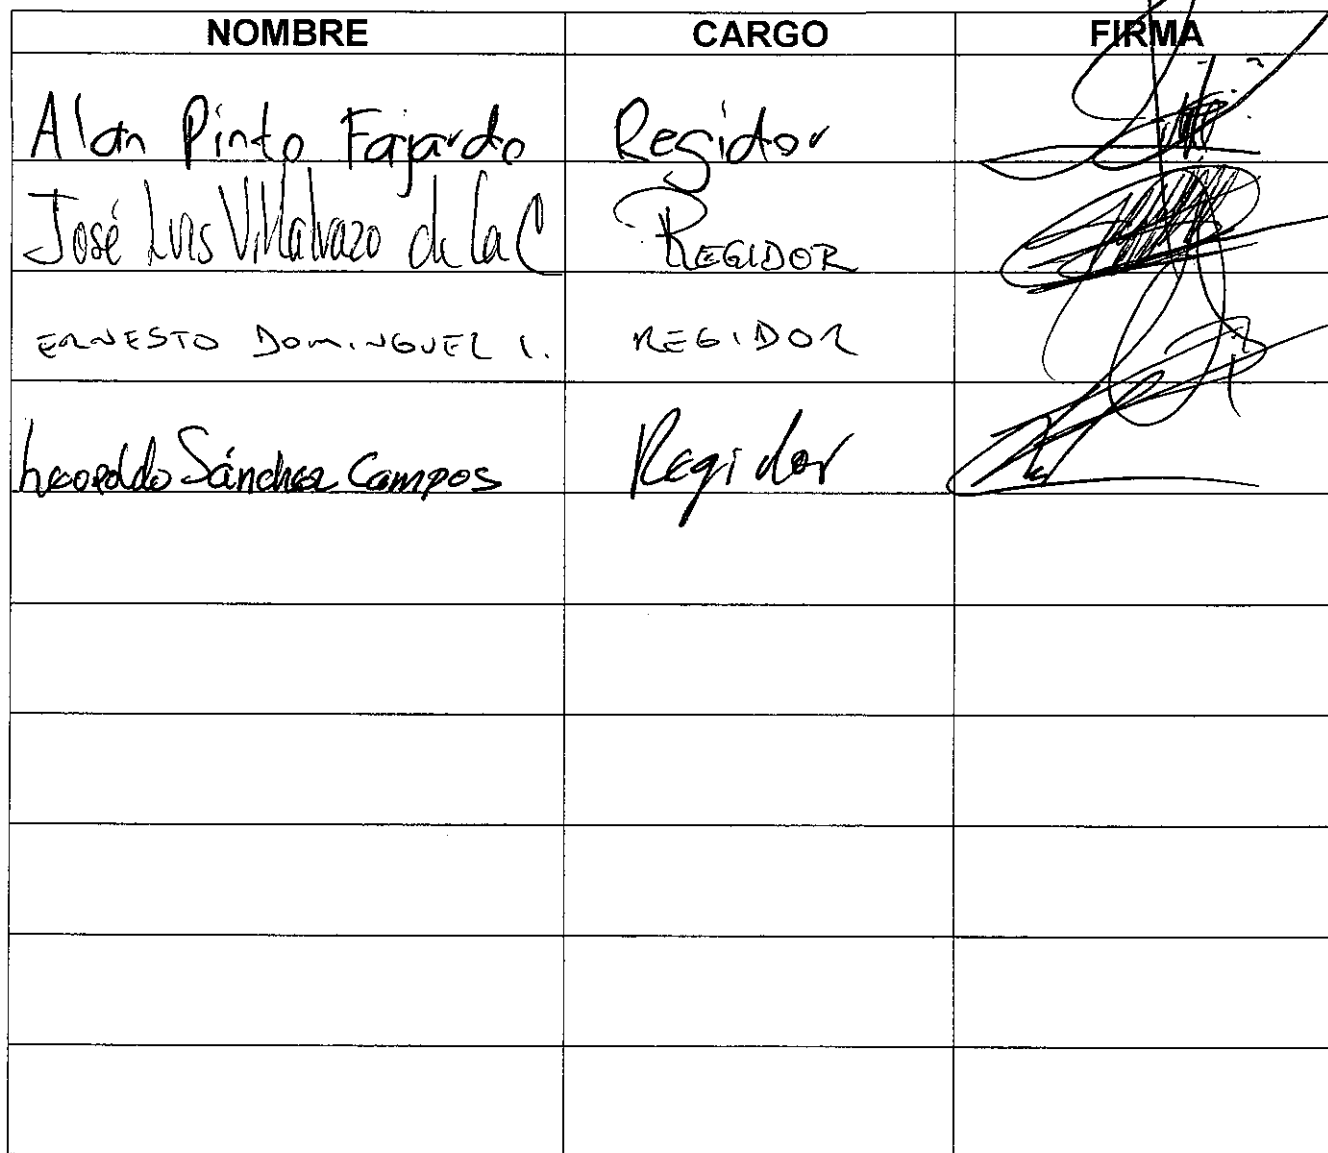 NOMBRE CARGO FIRMA
Alan Pinto Fajardo Regidor
José Luis Villalvazo de la C REGIDOR
ERNESTO DOMINGUEZ I. REGIDOR
Leopoldo Sánchez Campos Regidor